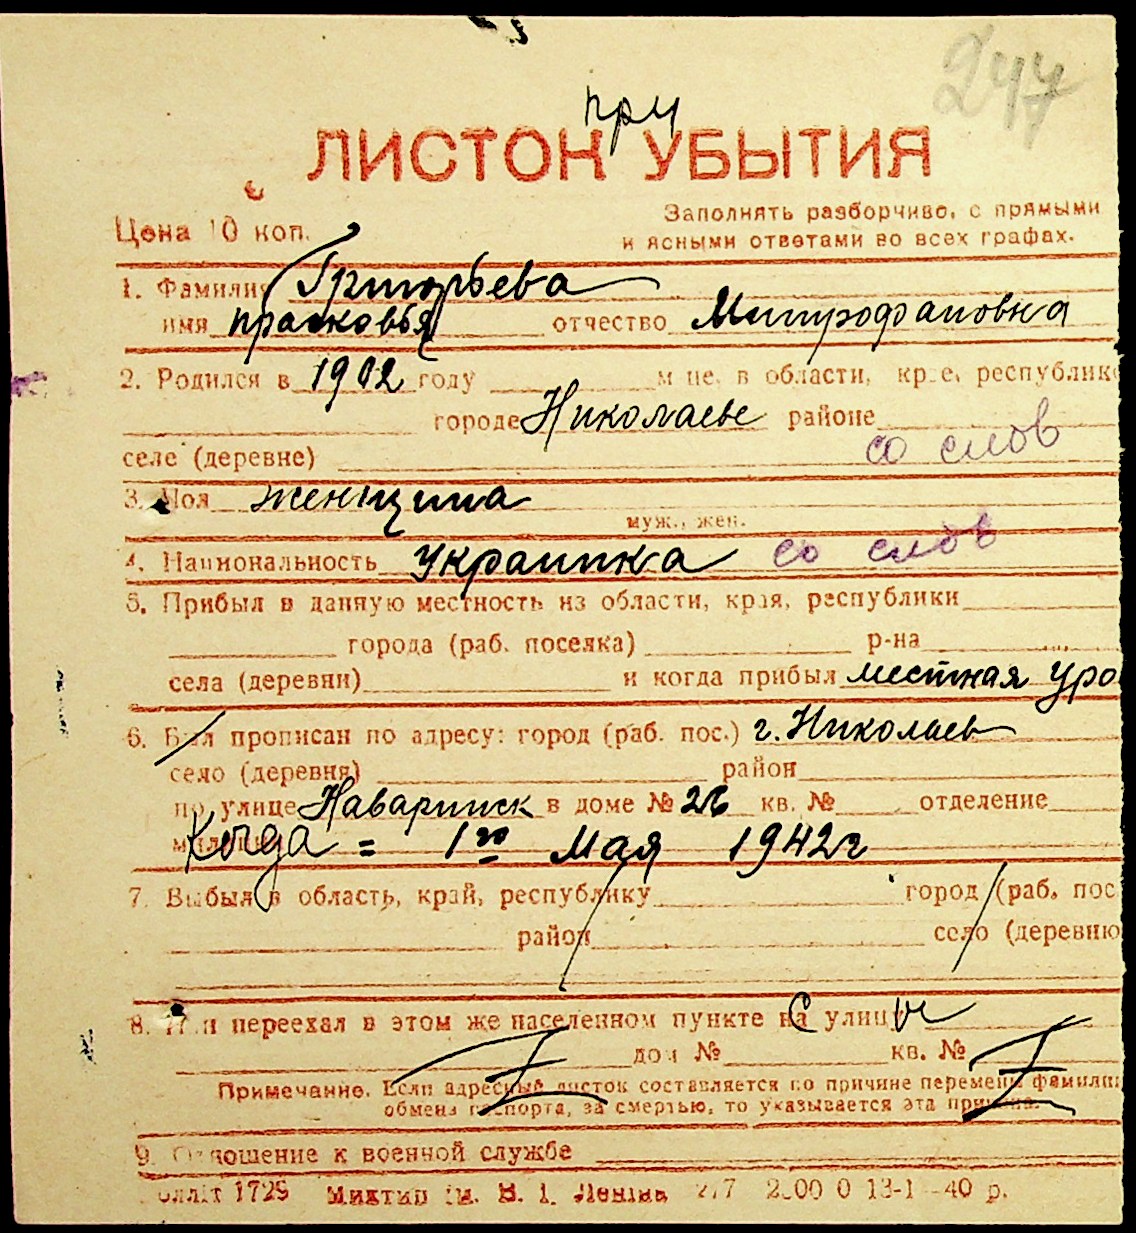 247
при
ЛИСТОК УБЫТИЯ
Цена 10 коп.
Заполнять разборчиво, с прямыми
и ясными ответами во всех графах.
1. Фамилия Григорьева
имя Прасковья отчество Митрофановна
2. Родился в 1902 году м-це, в области, крае, республике
городе Николаеве районе
со слов
селе (деревне)
3. Пол женщина
муж., жен.
4. Национальность украинка со слов
5. Прибыл в данную местность из области, края, республики
города (раб. поселка) р-на
села (деревни) и когда прибыл местная уро
6. Был прописан по адресу: город (раб. пос.) г. Николаев
село (деревня) район
по улице Наваринск в доме № 26 кв. № отделение
милиции Когда = 1го Мая 1942 г
7. Выбыл в область, край, республику город (раб. пос
район село (деревню
8. Или переехал в этом же населенном пункте на С улицу и
дом № кв. №
Примечание. Если адресный листок составляется по причине перемены фамилии
обмена паспорта, за смертью, то указывается эта причина.
9. Отношение к военной службе
1725 Миктип им. В. І. Леніна 40 р.